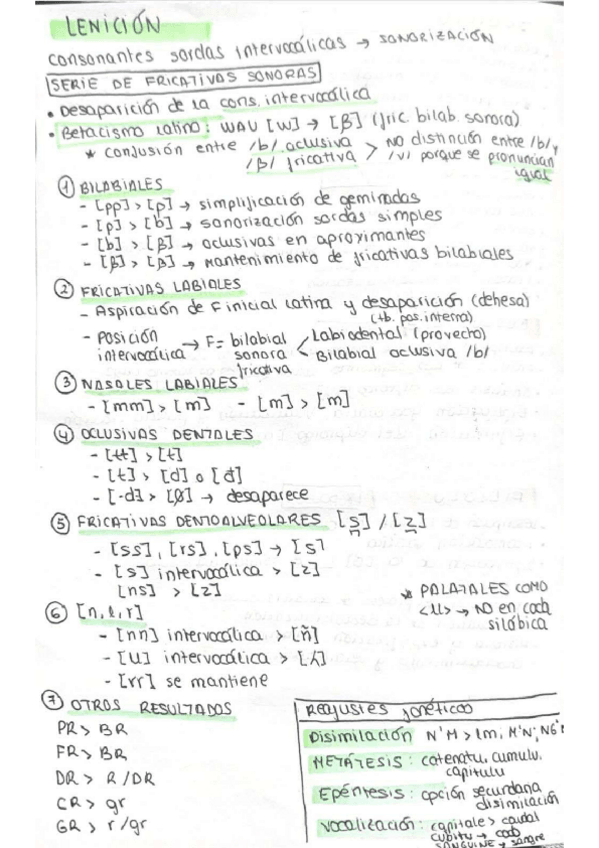 LENICIÓN
consonantes sordas intervocálicas → SONORIZACIÓN
SERIE DE FRICATIVAS SONORAS
• Desaparición de la cons. intervocálica
• Betacismo latino: WAU [w] → [β] (fric bilab. sonora)
* confusión entre /b/ oclusiva /β/ fricativa > NO distinción entre /b/ y /v/ porque se pronuncian igual
① BILABIALES
- [pp] > [p] → simplificación de geminadas
- [p] > [b] → sonorización sordas simples
- [b] > [β] → oclusivas en aproximantes
- [β] > [β] → mantenimiento de fricativas bilabiales
② FRICATIVAS LABIALES
- Aspiración de F inicial latina y desaparición (dehesa)
(tb. pos. interna)
- posición intervocálica → F = bilabial sonora fricativa < Labiodental (provecto)
Bilabial oclusiva /b/
③ NASALES LABIALES
- [mm] > [m] - [m] > [m]
④ OCLUSIVAS DENTALES
- [tt] > [t]
- [t] > [d] o [đ]
- [-d] > [Ø] → desaparece
⑤ FRICATIVAS DENTOALVEOLARES [s] / [z]
- [ss], [rs], [ps] → [s]
- [s] intervocálica > [z]
[ns] > [z]
* PALATALES COMO
<ll> → NO en coda
silábica
⑥ [n, l, r]
- [nn] intervocálica > [ñ]
- [ll] intervocálica > [ʎ]
- [rr] se mantiene
⑦ OTROS RESULTADOS
PR > BR
FR > BR
DR > R/DR
CR > gr
GR > r/gr
Reajustes fonéticos
Disimilación N'M > lm, M'N', NG'
METÁTESIS: catenatu, cumulu,
capitulu
Epéntesis: opción secundaria
disimilación
Vocalización: capitale > caudal
cubitu → codo
SANGUINE → sangre